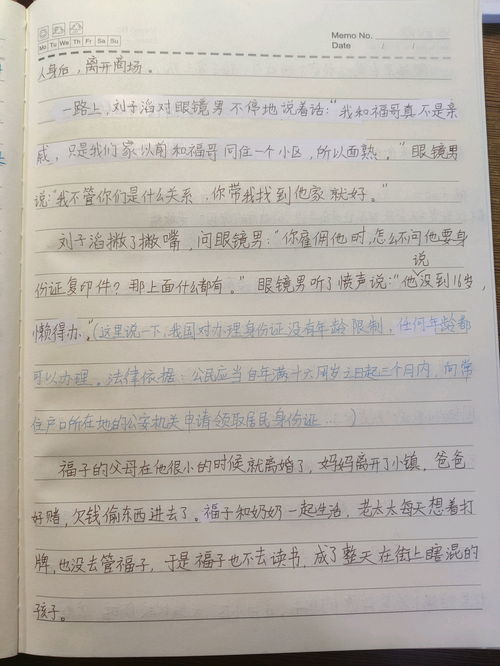 Memo No.
Mo Tu We Th Fr Sa Su
Date / /
人身后，离开商场。
一路上，刘子滔对眼镜男不停地说着话："我和福哥真不是亲
戚，只是我们家以前和福哥同住一个小区，所以面熟。"眼镜男
说："我不管你们是什么关系，你带我找到他家就好。"
刘子滔撇了撇嘴，问眼镜男："你雇佣他时，怎么不问他要身
份证复印件？那上面什么都有。"眼镜男听了愤声说："他说没到16岁，
懒得办。"（这里说一下，我国对办理身份证没有年龄限制，任何年龄都
可以办理。法律依据：公民应当自年满十六周岁之日起三个月内，向常
住户口所在地的公安机关申请领取居民身份证……）
福子的父母在他很小的时候就离婚了，妈妈离开了小镇，爸爸
好赌，欠钱偷东西进去了。福子和奶奶一起生活，老太太每天想着打
牌，也没去管福子，于是福子也不去读书，成了整天在街上瞎混的
孩子。